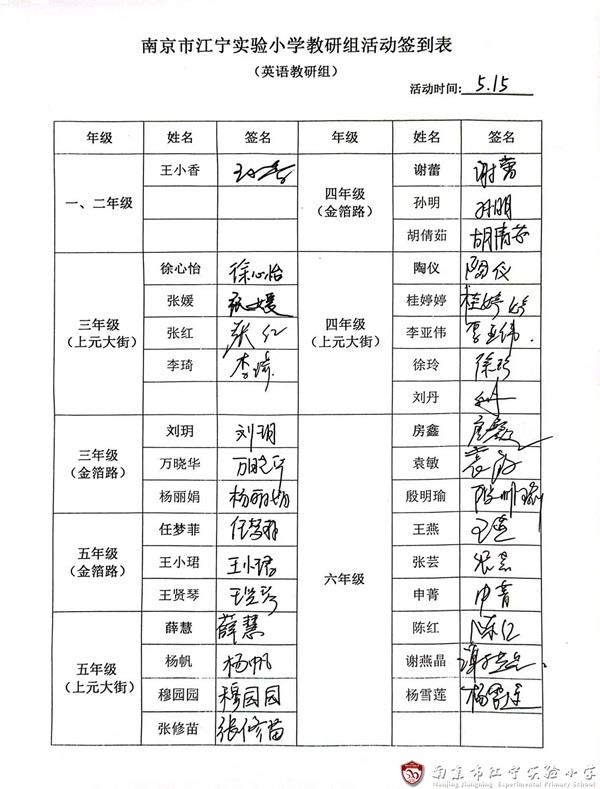 南京市江宁实验小学教研组活动签到表
（英语教研组）
活动时间: 5.15
年级 姓名 签名 年级 姓名 签名
一、二年级
王小香 王小香
四年级
（金箔路）
谢蕾 谢蕾
孙明 孙明
胡倩茹 胡倩茹
三年级
（上元大街）
徐心怡 徐心怡
张媛 张媛
张红 张红
李琦 李琦
四年级
（上元大街）
陶仪 陶仪
桂婷婷 桂婷婷
李亚伟 李亚伟
徐玲 徐玲
刘丹
三年级
（金箔路）
刘玥 刘玥
万晓华 万晓华
杨丽娟 杨丽娟
五年级
（金箔路）
任梦菲 任梦菲
王小珺 王小珺
王贤琴 王贤琴
五年级
（上元大街）
薛慧 薛慧
杨帆 杨帆
穆园园 穆园园
张修苗 张修苗
六年级
房鑫 房鑫
袁敏 袁敏
殷明瑜 殷明瑜
王燕 王燕
张芸 张芸
申菁 申菁
陈红 陈红
谢燕晶 谢燕晶
杨雪莲 杨雪莲
南京市江宁实验小学
Nanjing Jiangning Experimental Primary School